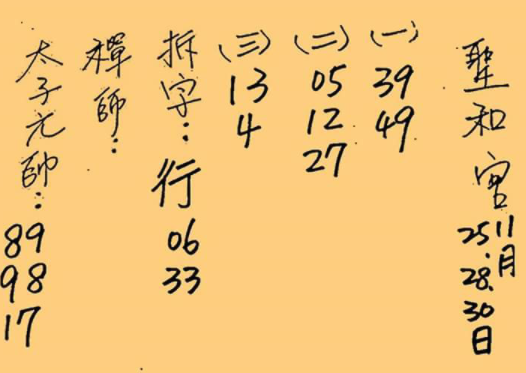 聖和宮 11月25.28.30日
(一) 39 49
(二) 05 12 27
(三) 13 4
拆字：行 06 33
禪師：
太子元帥：89 98 17